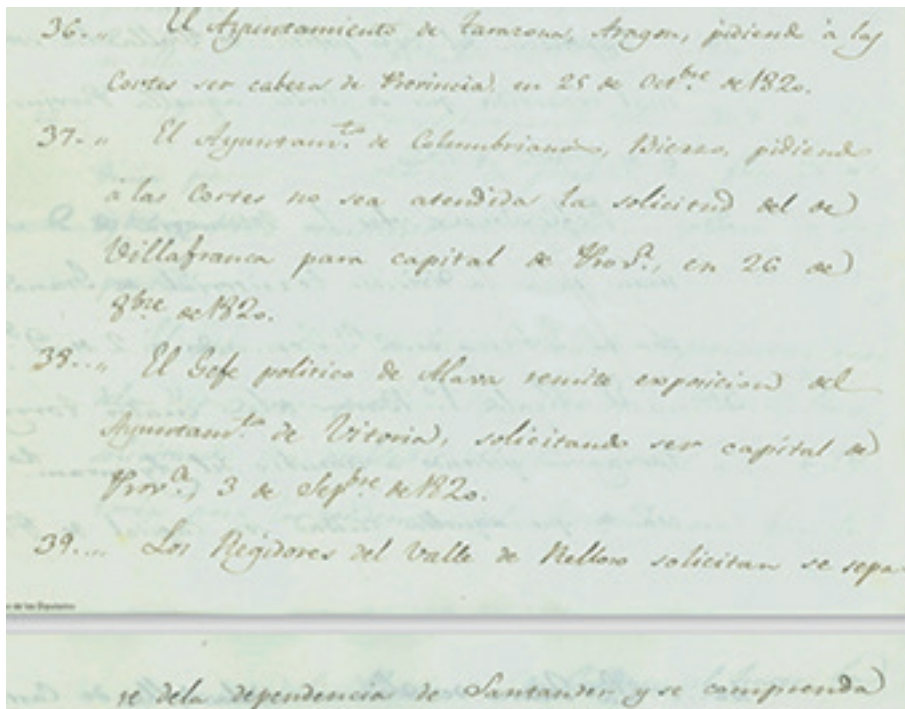 36.,, El Ayuntamiento de Tarazona, Aragon, pidiendo á las
Cortes ser cabeza de Provincia, en 25 de Oct.bre de 1820.
37.,, El Ayuntam.to de Columbrianos, Bierzo, pidiendo
á las Cortes no sea atendida la solicitud del de
Villafranca para capital de Prov.a, en 26 de
8bre de 1820.
38..,, El Gefe politico de Alava remite exposicion del
Ayuntam.to de Vitoria, solicitando ser capital de
Prov.a, 3 de Sep.bre de 1820.
39.... Los Regidores del Valle de solicitan se sepa-
de los Diputados
re dela dependencia de Santander y se comprenda